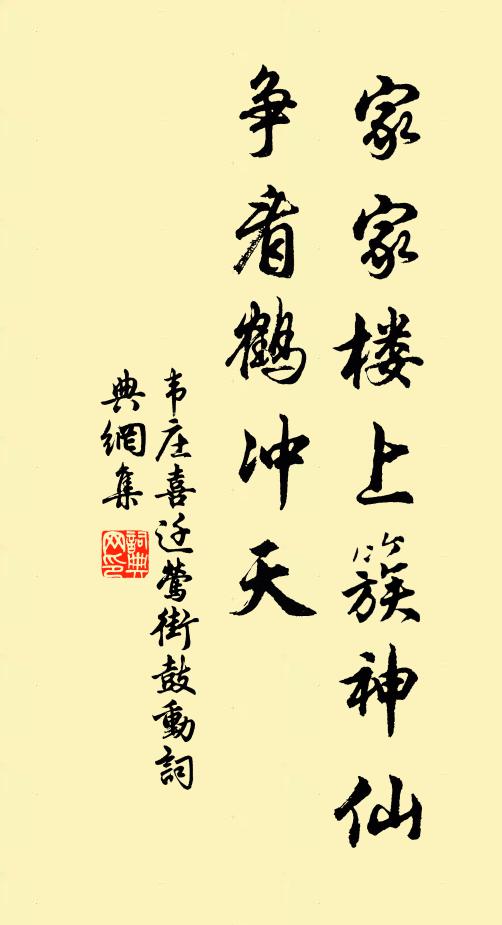 家家楼上簇神仙
争看鹤冲天
韦庄喜迁莺街鼓動詞
典網集
詞典网印